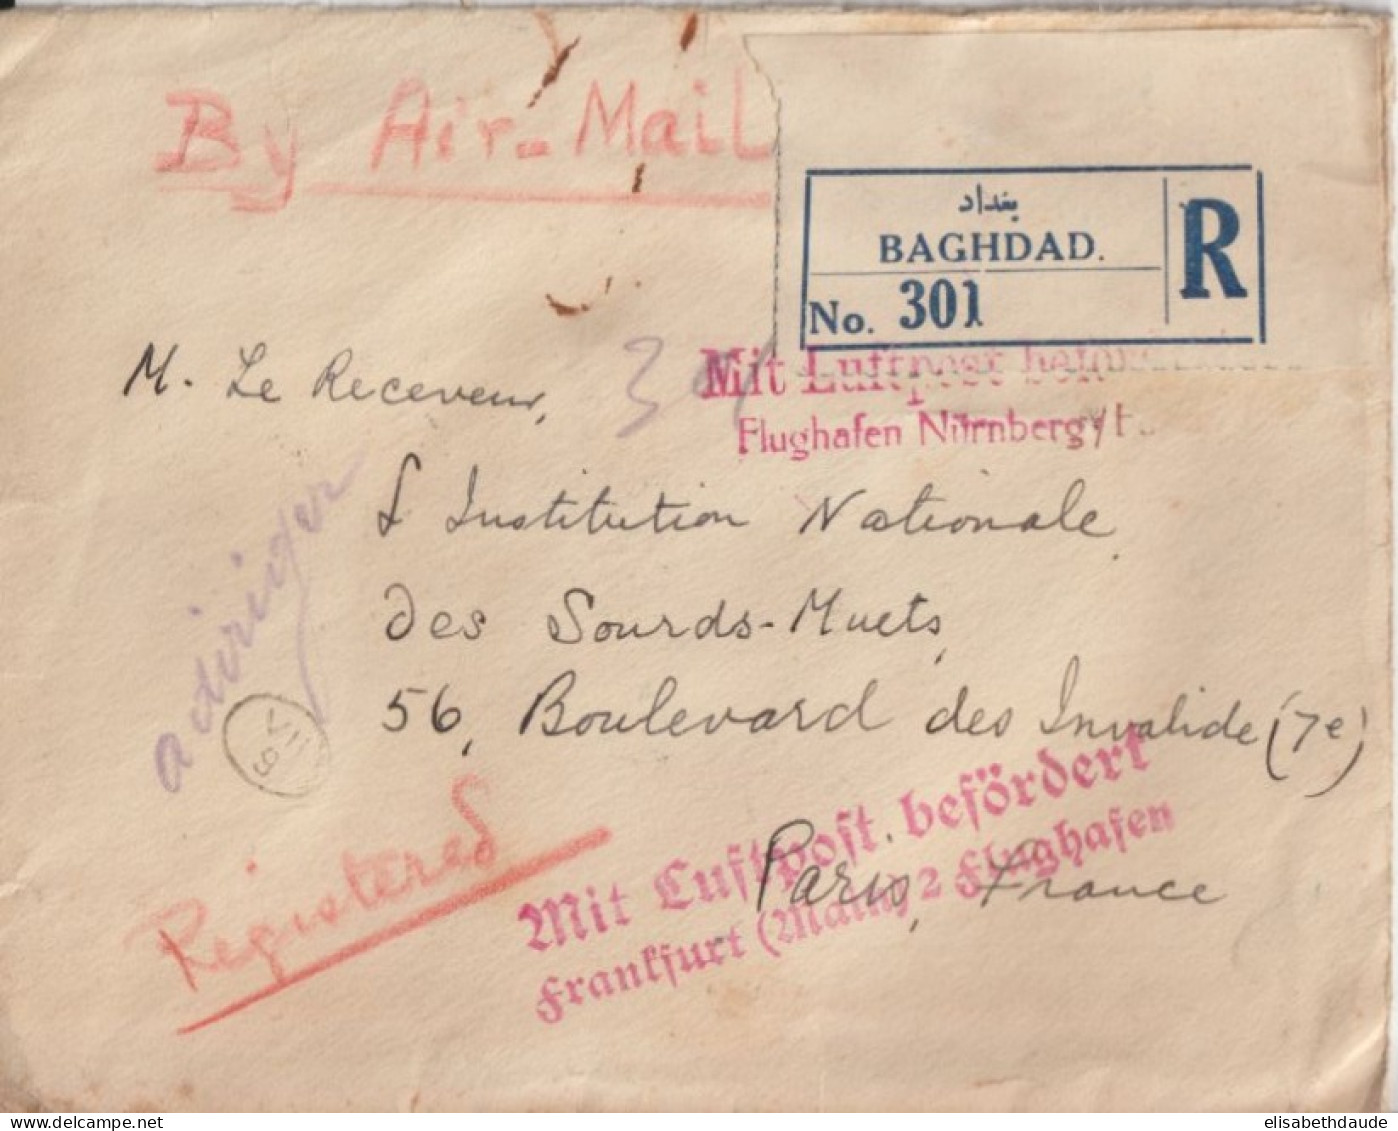 By Air-Mail
بغداد
BAGHDAD.
R
No. 301
Mit Luftpost
Flughafen Nürnberg
M. Le Receveur,
34
L'Institution Nationale
des Sourds-Muets,
56, Boulevard des Invalide (7e)
Paris, France
a diriger
VII
9
Registered
Mit Luftpost befördert
Frankfurt (Main) 2 Flughafen
elisabethdaude